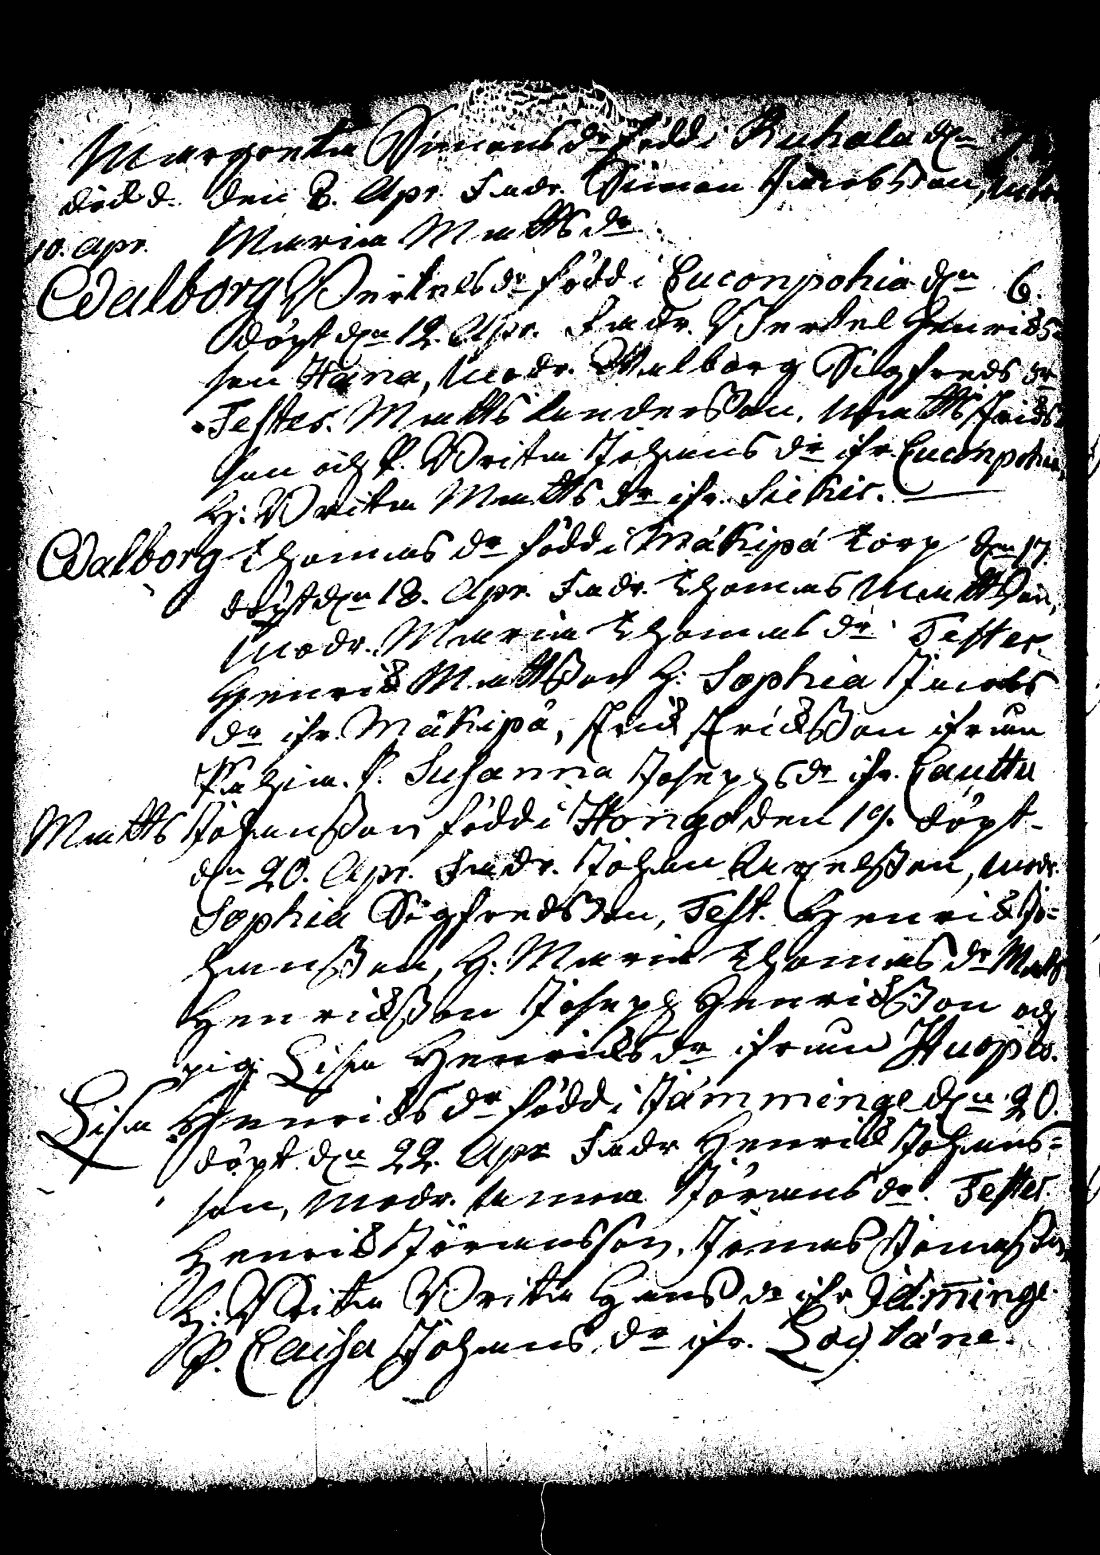 Margreta Simons dr född i Ruhala den
död d. den 8. Apr. Fadr. Simon Jacobsson, Modr
10. apr. Maria Matts dr
Walborg Bertels dr född i Cuconpohia den 6.
döpt den 12. Apr. Fadr. Bertel Henrichs-
son Hana, Modr. Walborg Sigfreds dr
Testes. Matts Andersson, Matts Erichs
son och P. Brita Johans dr ifr. Cuconpohia,
H: Brita Matts dr ifr. Sickis.
Walborg Thomas dr född i Mäkipä torp den 17.
döpt den 18. Apr. Fadr. Thomas Mattsson,
Modr. Maria Thomas dr. Testes.
Henrich Mattsson H: Sophia Jacobs
dr ifr. Mäkipä, Erich Erichsson ifrån
P. Susanna Josephs dr ifr. Cauttu
Matts Johansson född i Hongo den 19. döpt
den 20. Apr. Fadr. Johan Axelsson, Modr.
Sophia Sigfredsson, Test. Henrich Jo-
hansson, H: Maria Thomas dr Matts
Henrichsson Joseph Henrichsson och
pig. Lisa Henrichs dr ifrån Huopio.
Lisa Henrichs dr född i Jämminge den 20.
döpt den 22. Apr Fadr Henrich Johans-
son, Modr. Anna Jörans dr. Testes
Henrich Jöransson, Jonas Jonasson,
H: Brita Brita Hans dr ifr. Jäminge.
P. Caisa Johans dr ifr. Log täne.